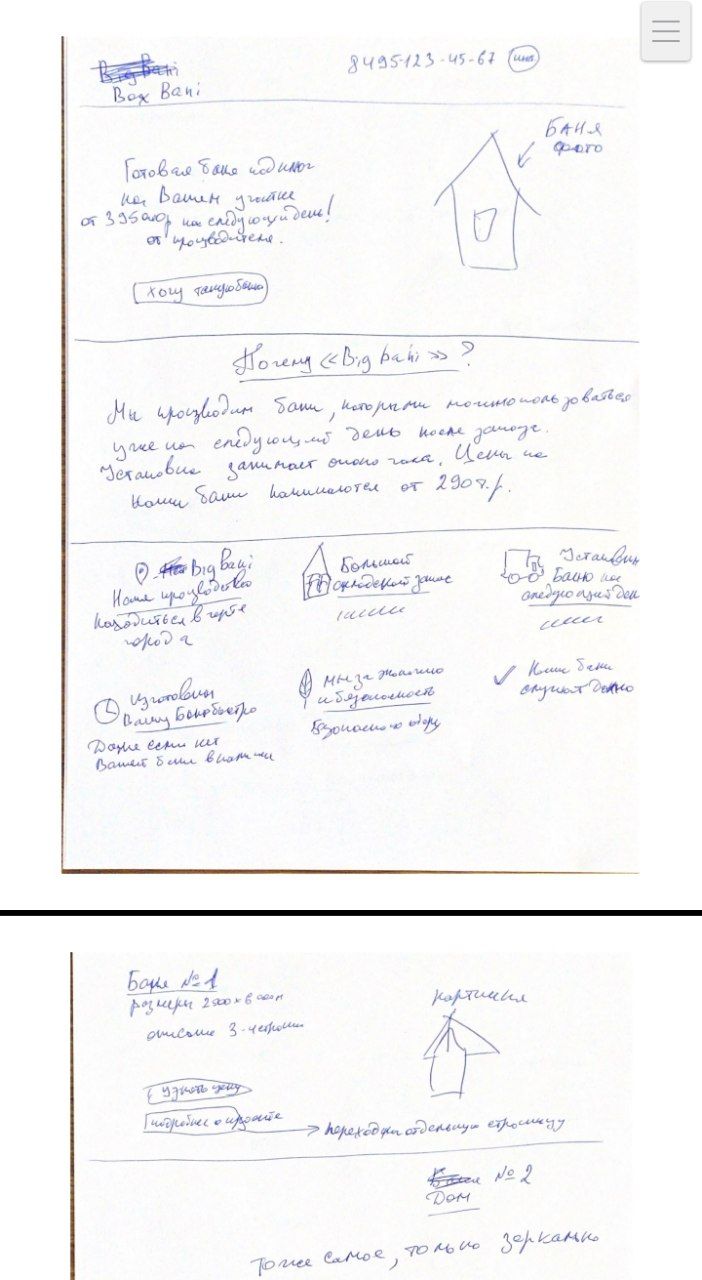 Big Bani
Box Bani
8495-123-45-67
Готовая баня под ключ
на Вашем участке
от 395000р на следующий день!
от производителя.
Хочу такую баню
БАНЯ
фото
Почему «Big bani»?
Мы производим бани, которыми можно пользоваться
уже на следующий день после заказа.
Установка занимает около часа. Цены на
наши бани начинаются от 290т.р.
Big Bani
Наше производство
находиться в черте
города
Большой
складской запас
Установим
Баню на
следующий ден
Изготовим
Вашу Баню быстро
Даже если нет
Вашей бани в наличии
Мы за экологию
и безопасность
Безопасного
Наши бани
служат долго
Баня №1
размеры
описание 3-4 строки
Узнать цену
подробнее о проекте
переход на отдельную страницу
картинка
Баня №2
Дом
Тоже самое, только зеркально